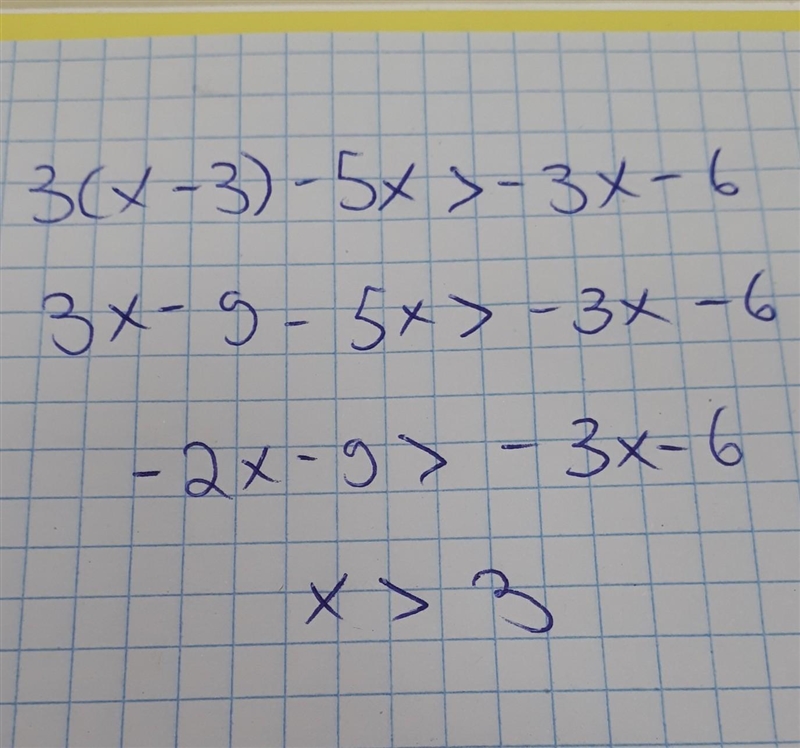 3(x - 3) - 5x > - 3x - 6
3x - 9 - 5x > - 3x - 6
- 2x - 9 > - 3x - 6
x > 3